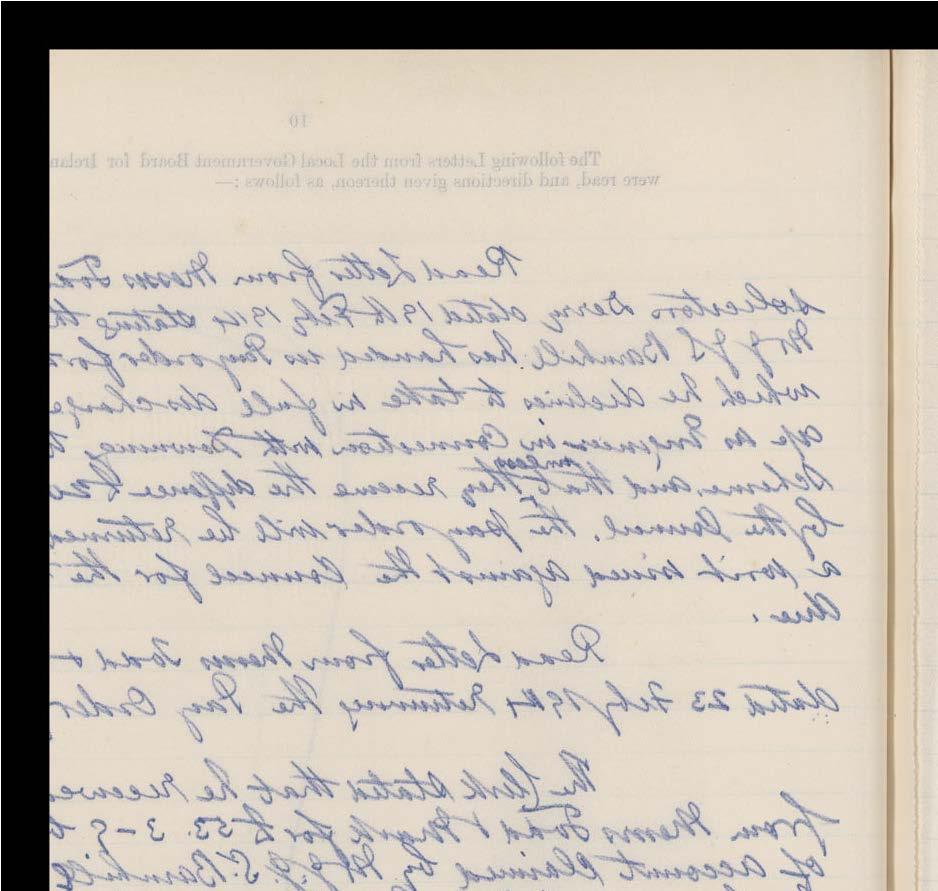 10
The following Letters from the Local Government Board for Irelan
were read, and directions given thereon, as follows :—
Read Letter from Messrs Tod
Solicitors Derry dated 19th Feby 1914 stating th
Mr J S Barnhill has handed us Pay order for
which he declines to take in full discharge
as Engineer in Connection with
Scheme and that unless they receive the differnce £20
by the Council, the pay order will be returned
a writ issued against the Council for the
due.
Read Letter from Messrs Todd &
dated 23 Feby 1914 returning the Pay Order
The Clerk stated that he received
from Messrs Todd & Mark for £53. 3-5
of account Claimed by Mr J. S. Barnhill